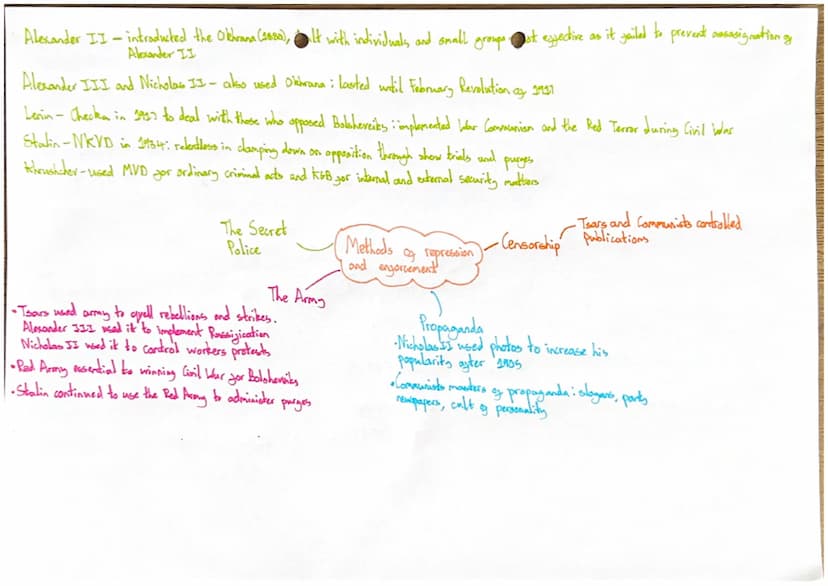 Alexander II – introducted the Okhrana (1880), lt with individuals and small groups. st effective as it failed to prevent assasignation of
Alexander II
Alexander III and Nicholas II – also used Okhrana: lasted until February Revolution of 1917
Lenin – Checka in 1917 to deal with those who opposed Bolsheveiks: implemented War Communism and the Red Terror during Civil War
Stalin – NKVD in 1934: relentless in clamping down on opposition through show trials and purges
Khrushchev – used MVD for ordinary criminal acts and KGB for internal and external security matters
The Secret
Police
Methods of repression
and enforcement
Censorship
Tsars and Communists controlled
publications
The Army
• Tsars used army to quell rebellions and strikes.
Alexander III used it to implement Russification
Nicholas II used it to control workers protests
• Red Army essential to winning Civil War for Bolsheviks
• Stalin continued to use the Red Army to administer purges
Propaganda
• Nicholas II used photos to increase his
popularity after 1905
• Communists masters of propaganda: slogans,
newspapers, cult of personality